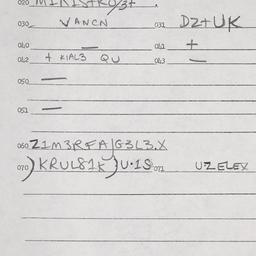 020 MIKIS+RO/3+ .
030 VANCN 031 DZ+UK
040 — 041 +
042 + KIAL3 QU 043 —
050 —
051 —
060 Z1M3RFA/G3L3.X
070 )KRUL81K)U·1S 071 UZELEX